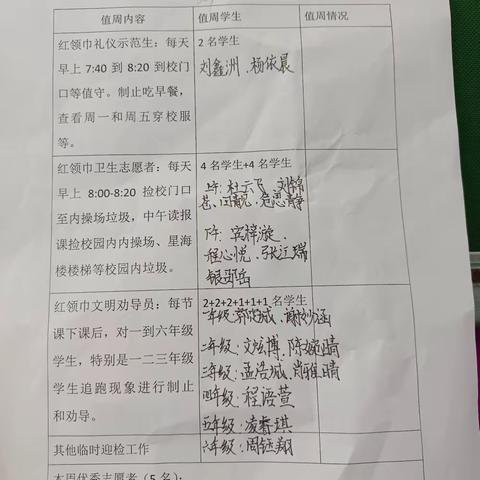 值周内容 值周学生 值周情况
红领巾礼仪示范生：每天
早上 7:40 到 8:20 到校门
口等值守。制止吃早餐，
查看周一和周五穿校服
等。
2 名学生
刘鑫洲、杨依晨
红领巾卫生志愿者：每天
早上 8:00-8:20 捡校门口
至内操场垃圾，中午读报
课捡校园内内操场、星海
楼楼梯等校园内垃圾。
4 名学生+4 名学生
上午：杜云飞、刘锦
下午：宾梓漩、
程心悦、张江瑞
岳
红领巾文明劝导员：每节
课下课后，对一到六年级
学生，特别是一二三年级
学生追跑现象进行制止
和劝导。
2+2+2+1+1+1 名学生
一年级：郭 城、谢 涵
二年级：文 博、陈婉晴
三年级：孟浩城、肖雅晴
四年级：程语萱
五年级：凌睿琪
六年级：周钰翔
其他临时迎检工作
本周优秀志愿者（5 名）：